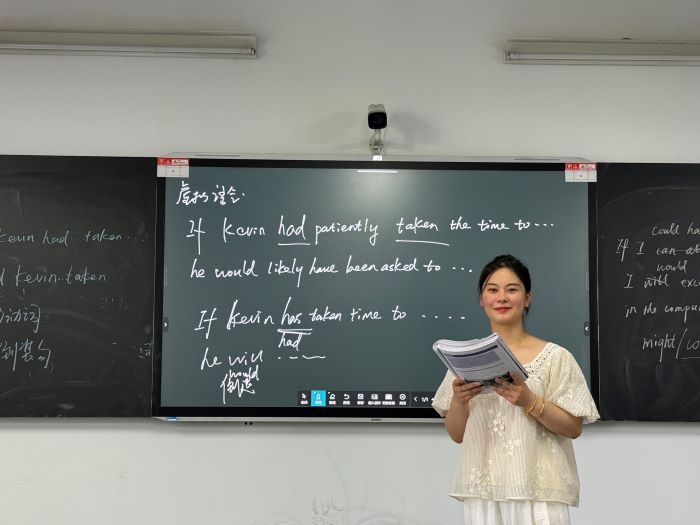 Kevin had...taken...
d Kevin..taken
虚拟语气:
If Kevin had patiently taken the time to...
he would likely have been asked to ...
If Kevin has taken time to ....
had
he will ....
would
倒装
could ha
If I can
would
I will exc
in the compu
might/co